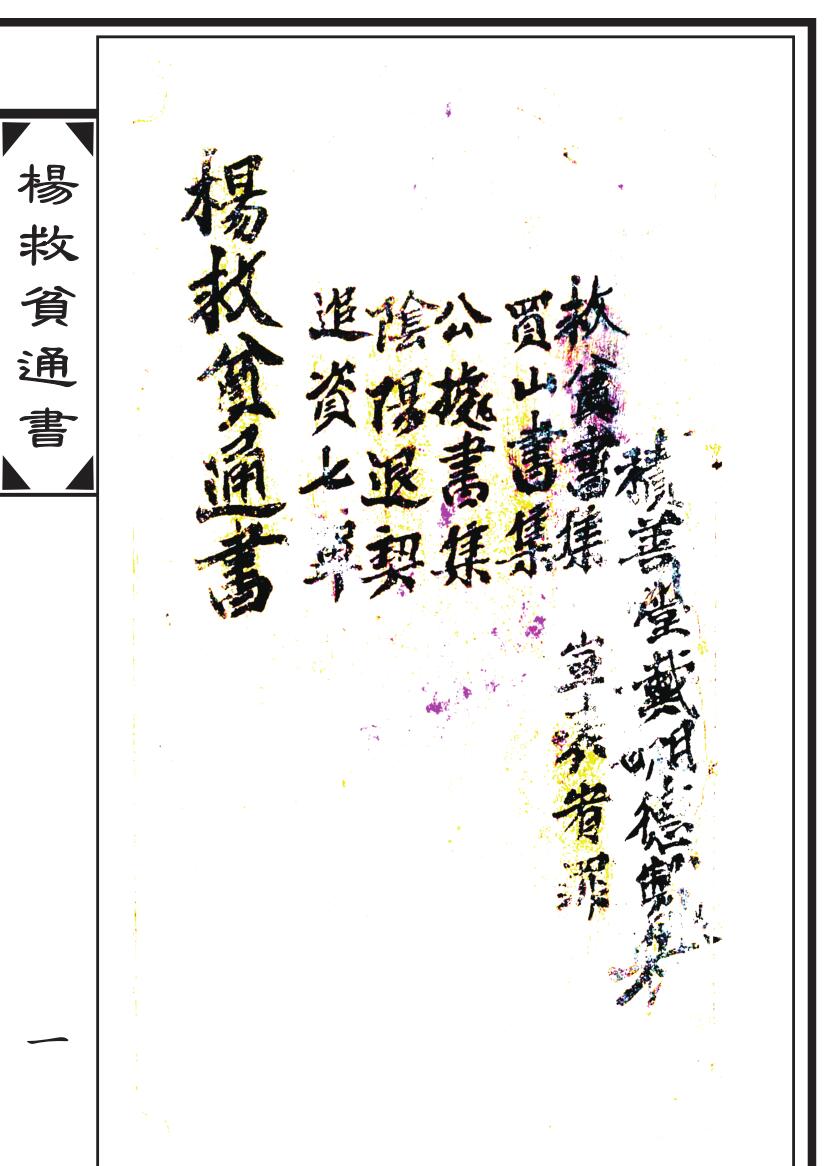 積善堂戴明德
救貧書集
買山書集
公擬書集
陰陽退契
追資七單
楊救貧通書
楊救貧通書
一